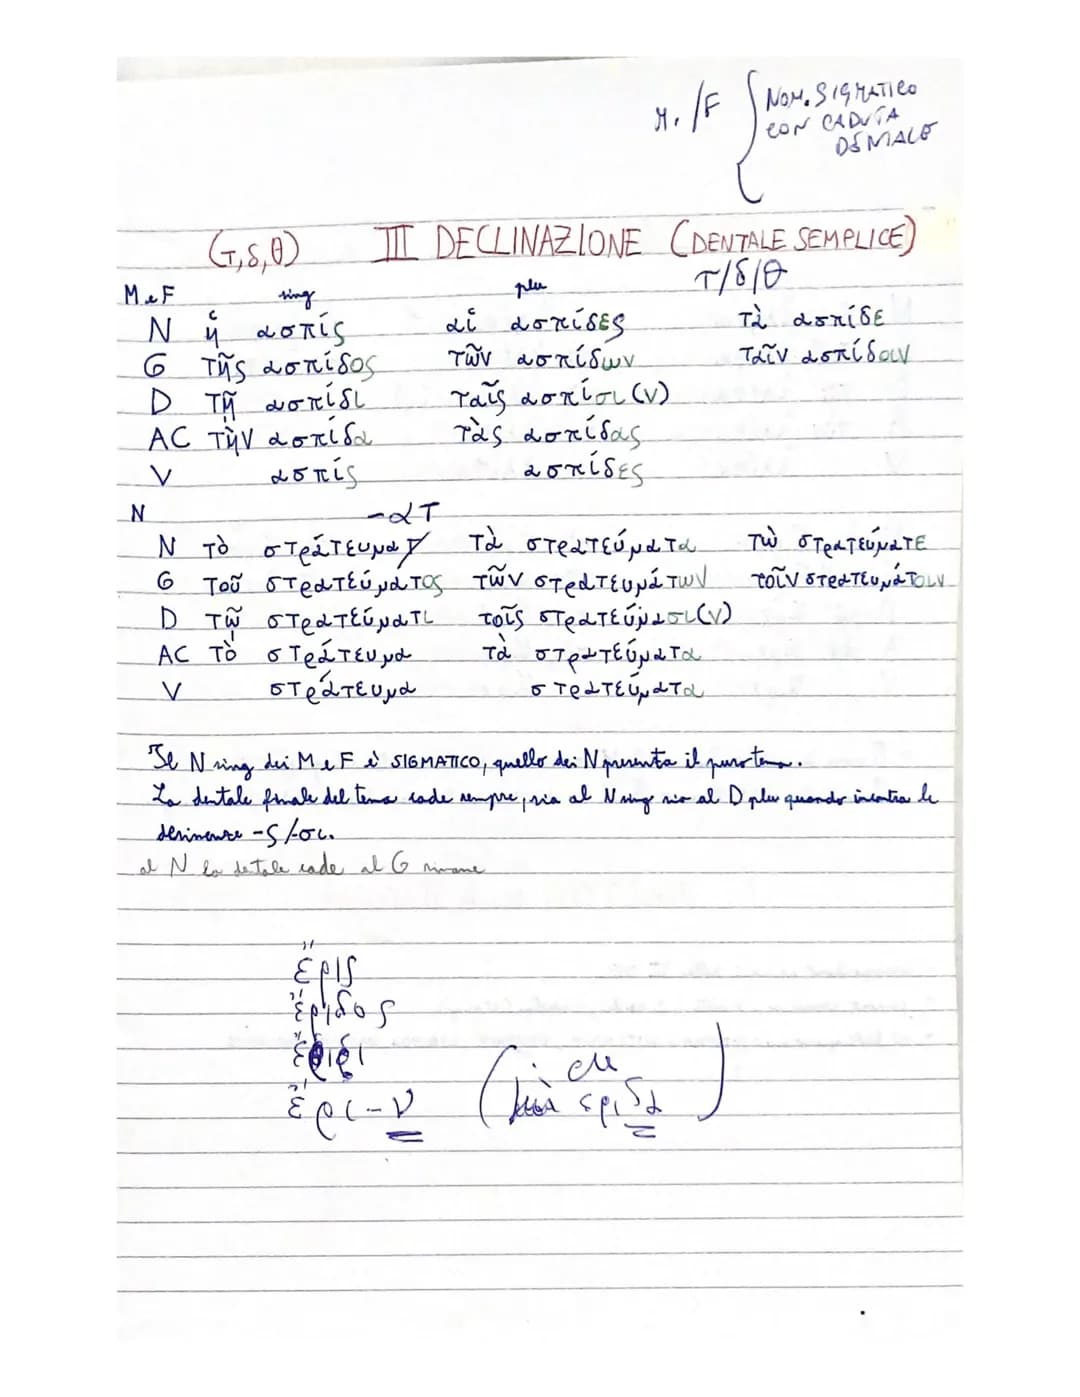 M. /F { NOM. SIGMATICO
CON CADUTA
DENTALE
(τ,δ,θ) III DECLINAZIONE (DENTALE SEMPLICE)
τ/δ/θ
M e F sing plu
N ἡ ασπίς αἱ ασπίδες τὰ ασπίδε
G τῆς ασπίδος τῶν ασπίδων ταῖν ασπίδοιν
D τῇ ασπίδι ταῖς ασπίσι (ν)
AC τὴν ασπίδα τὰς ασπίδας
V ασπίς ασπίδες
N -ατ
N τὸ στράτευμα τὰ στρατεύματα τὼ στρατεύματε
G τοῦ στρατεύματος τῶν στρατευμάτων τοῖν στρατευμάτοιν
D τῷ στρατεύματι τοῖς στρατεύμασι(ν)
AC τὸ στράτευμα τὰ στρατεύματα
V στράτευμα στρατεύματα
Il N sing dei M e F è SIGMATICO, quello dei N presenta il puro tema.
La dentale finale del tema cade sempre, sia al N sing sia al D plu quando incontra le
desinenze -ς/-σι.
al N la detale cade al G rimane
ἔρις
ἔριδος
ἔρι-ν